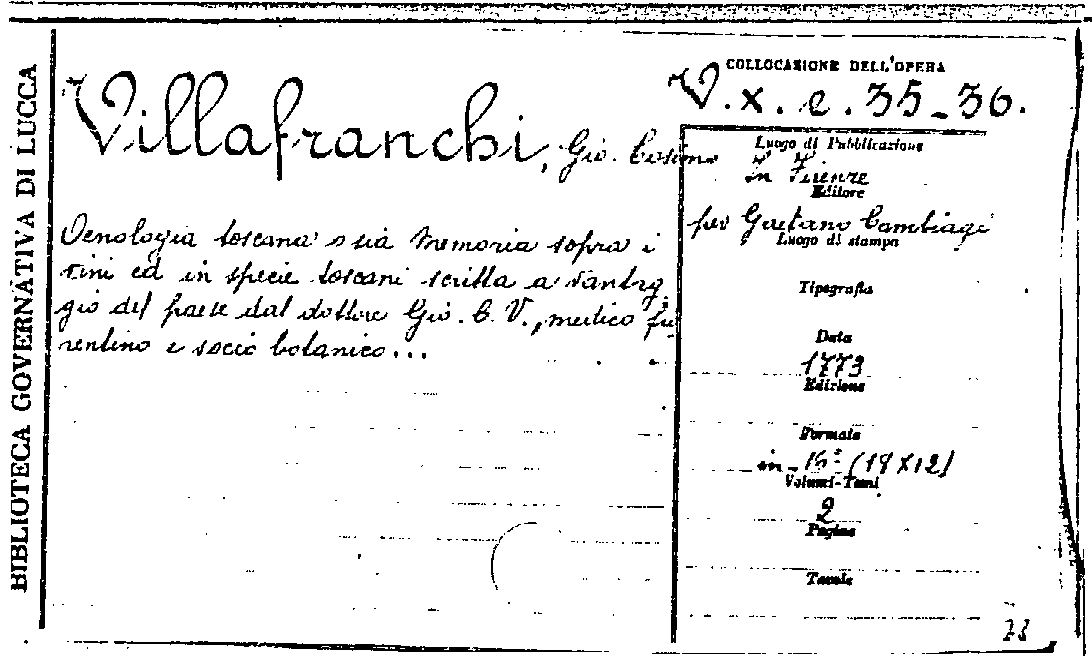 BIBLIOTECA GOVERNATIVA DI LUCCA
Villafranchi, Gio. Cosimo
Oenologia toscana o sia Memoria sopra i
vini ed in specie toscani scritta a vantag
gio del paese dal dottore Gio. C. V., medico fio
rentino e socio botanico...
COLLOCAZIONE DELL'OPERA
V. x. e. 35-36.
Luogo di Pubblicazione
in Firenze
Editore
per Gaetano Cambiagi
Luogo di stampa
Tipografia
Data
1773
Edizione
Formato
in-16° (19X12)
Volumi-Tomi
2
Pagine
Tavole